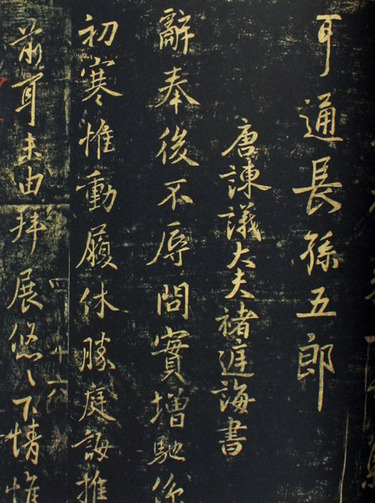 通長孫五郎
唐諫議大夫褚庭誨書
辭奉後不辱問實增馳係
初寒惟動履休勝庭誨推
前耳未由拜展悠〻下情惟